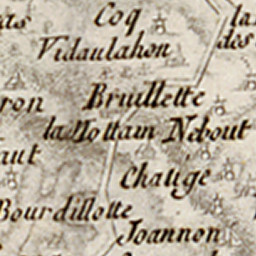 Coq
Vidaulahon
des
ron Bruillette
la Nebout
aut
Chaugé
Bourdillotte
Joannon